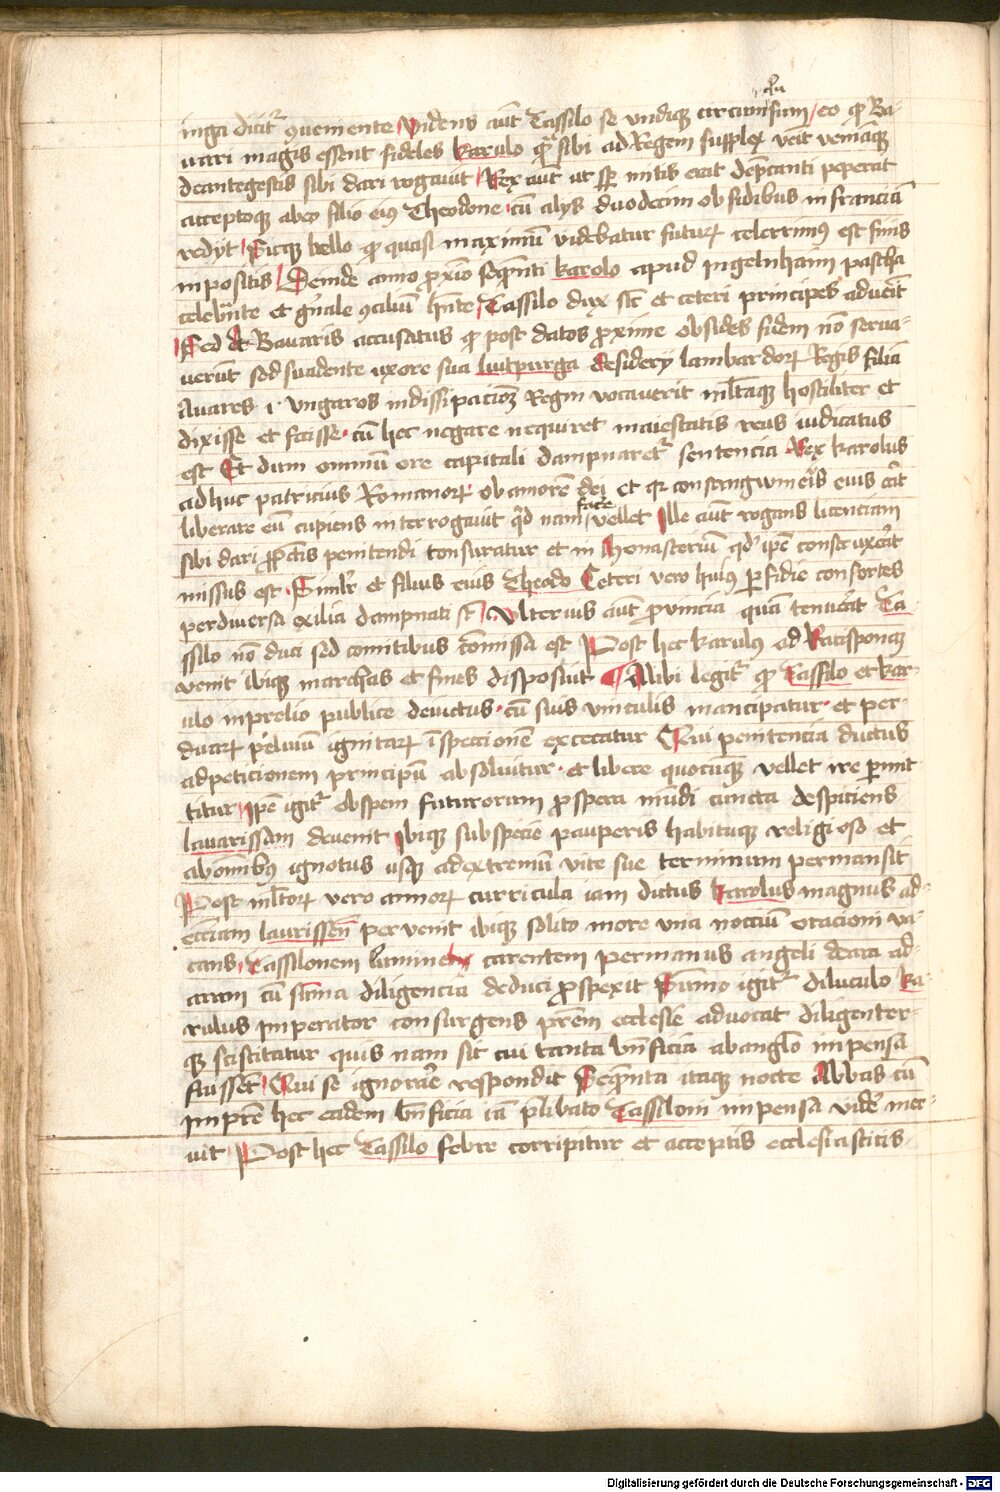 inga dicit᷑ ꝯueniente Videns aut̄ Tassilo se vndiqꝫ circumfusum eo ꝙ Ba-
uuari magis essent fideles karulo ꝙ̄ sibi ad Regem supplex venit veniāqꝫ
de antegestis sibi dari rogauit Rex aut̄ ut sꝑ mitis erat dep̄canti pepercit
acceptoqꝫ ab eo filio eiꝰ Theodone cū alijs duodecim obsidibus in franciā
redijt Sicqꝫ bello ꝙ quasi maximū videbatur futurꝝ celerrimꝰ est finis
inpositis Deinde anno ꝓxīo seq̄nti karolo apud jngelnhaim pascha
celebrāte et gn̄ale ꝯciliū hn̄te Tassilo dux sic et ceteri principes aduēit
Sed A Bauaris accusatus ꝙ post datos ꝓxime obsides fidem nō serua-
uerūt sed suadente uxore sua luitpurga desiderij lambardorꝝ Regis filia
Auares ı vngaros in dissipacioꝫ Regni vocauerit ml̄taqꝫ hostiliter et
dixisse et fecisse cū hec negare nequiret maiestatis reus iudicatus
est Et dum omniū ore capitali dampnaret᷑ sentencia Rex karolus
adhuc patricius Romanorꝝ ob amorē dei et qꝛ consangwineꝰs eius erat
liberare eū cupiens interrogauit qͥd nam facere vellet Ille aut̄ rogans licenciam
sibi dari ꝓ pctīs penitendi tonsuratur et in Monasteriū qd̕ ipē construxerat
missus est Simlr̄ et filius eius Theodo Ceteri vero huiꝰ ꝑfidie consortes
per diuersa exilia dampnati st̄ Vlterius aut̄ ꝓuincia quā tenuerat Ta-
ssilo nō duci sed comitibus cōmissa est Post hec karulꝰ ad Ratisponaꝫ
venit ibiqꝫ marchas et fines disposuit Alibi legit᷑ ꝙ Tassilo et kar-
ulo in prelio publice deuictus cū suis vinculis mancipatur et per
duarꝝ peluiū ignitarꝝ īspeccionē excecatur Qui penitencia ductus
ad peticionem principū absoluitur et libere quocūqꝫ vellet ire ꝑmit-
titur Ipē igit᷑ ob spem futurorum ꝓspera mūdi cuncta despiciens
lauarissam deuenit Ibiqꝫ sub specie pauperis habituqꝫ religioso et
ab omībꝰ ignotus usqꝫ ad extremū vite sue terminum permansit
Post ml̄torꝝ vero annorꝝ curricula iam dictus karolus magnus ad
eccīam laurissen̄ peruenit ibiqꝫ solito more vna noctiū oracioni va-
cans Tassilonem lumine carentem per manus angeli de ara ad
aram cū sūma diligencia deduci ꝓspexit Primo igit᷑ diluculo ka-
rulus Imperator consurgens pr̄em ecclesie aduocat diligenter-
qꝫ sciscitatur quis nam sit cui tanta bn̄ficia ab anglo impensa
fuissēt Qui se ignorāre respondit Seq̄nta itaqꝫ nocte Abbas cū
imp̄re hec eadem bn̄ficia iā p̄libato Tassiloni impensa vide᷑ mer-
uit Post hec Tassilo febre corripitur et acceptis ecclesiasticis